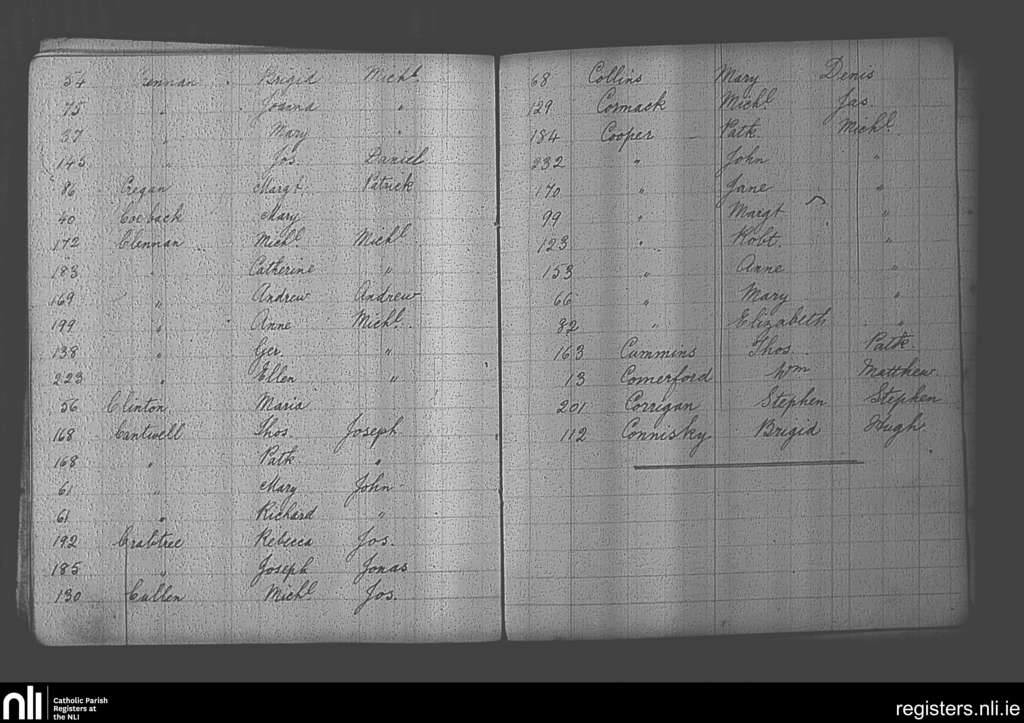 54 Clennan Brigid Michl.
75 " Joanna "
37 " Mary "
145 " Jos. Daniel
86 Cregan Margt. Patrick
40 Mary
172 Clennan Michl. Michl.
183 " Catherine "
169 " Andrew Andrew
199 " Anne Michl.
138 " Ger. "
223 " Ellen "
56 Clinton Maria
168 Cantwell Thos. Joseph
168 " Patk "
61 " Mary John
61 " Richard "
192 Crabtree Rebecca Jos.
185 " Joseph Jonas
130 Cullen Michl. Jos.
68 Collins Mary Denis
129 Cormack Michl. Jas.
184 Cooper Patk. Michl.
232 " John "
170 " Jane "
99 " Margt "
123 " Robt. "
153 " Anne "
66 " Mary "
82 " Elizabeth "
163 Cummins Thos. Patk.
13 Comerford Wm Matthew
201 Corrigan Stephen Stephen
112 Connisky Brigid Hugh
nli
Catholic Parish
Registers at
the NLI
registers.nli.ie